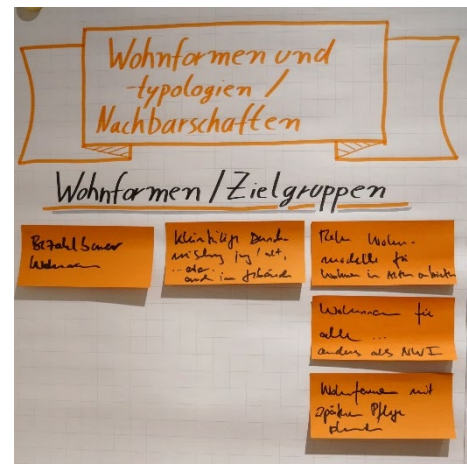 Wohnformen und
-typologien /
Nachbarschaften
Wohnformen / Zielgruppen
Bezahlbarer
Wohnen
Kleinteilige Durch-
mischung jung / alt,
... aber
auch im Gebäude
Wohn-
modelle für
Wohnen im Alter anbieten
Wohnen für
alle ...
anders als NWI
Wohnformen mit
später Pflege